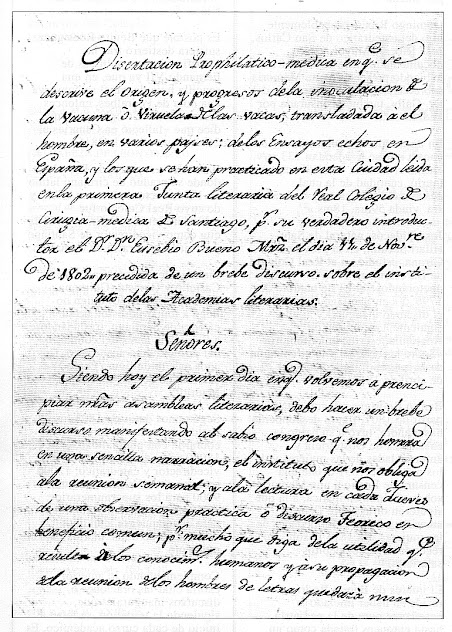 Disertacion Prophilatico-medica en q.e se
descrive el origen, y progresos dela inoculacion de
la vacuna ó Viruela de las vacas, transladada à el
hombre, en varios paises; delos Ensayos echos en
España, y los que se han practicado en esta Ciudad leida
en la primera Junta literaria del Real Colegio de
Cirugia-medica de Santiago, p.r su verdadero introduc-
tor el D.r D.n Eusebio Bueno Mrñz. el dia 11 de Nov.re
de 1802. precedida de un brebe discurso sobre el insti-
tuto delas Academias literarias.
Señores.
Siendo hoy el primer dia enq.e volvemos á prenci-
piar nr̃as asambleas literarias, debo hacer un brebe
discurso manifestando al sabio congreso q.e nos honrra
en una sencilla narracion, el instituto que nos obliga
ala reunion semanal; y ala lectura en cada Jueves
de una observacion practica ó discurso Teorico en
beneficio comun; p.r mucho que diga dela utilidad q.e
resulta a los conocim.tos humanos y asu propagacion
dela reunion delos hombres de letras quedará